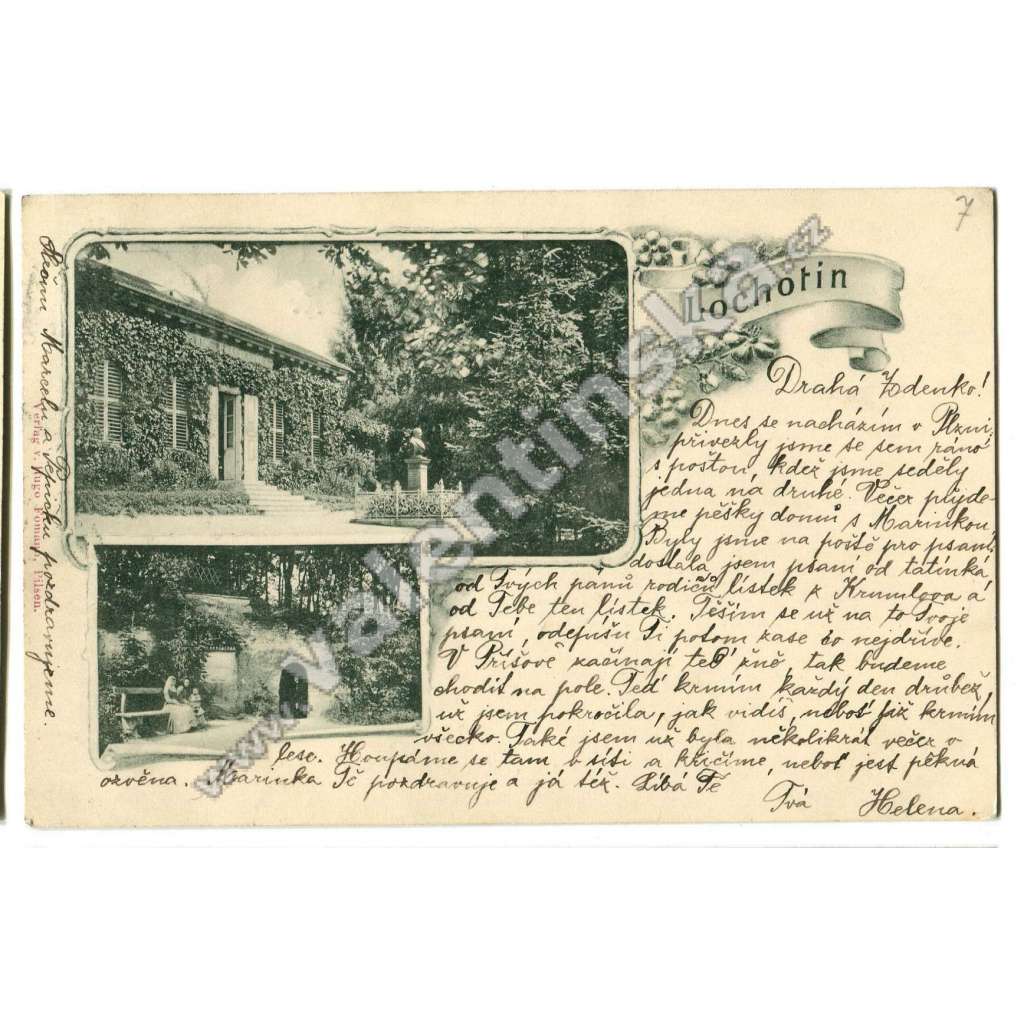 7
Lochotin
Drahá Zdenko!
Dnes se nacházím v Plzni,
přivezly jsme se sem ráno
s poštou, kdež jsme seděly
jedna na druhé. Večer půjde-
me pěšky domů s Marinkou.
Byly jsme na poště pro psaní,
dostala jsem psaní od tatínka
od Tvých pánů rodičů lístek z Krumlova a
od Tebe ten lístek. Těším se už na to Tvoje
psaní, odepíšu Ti potom zase co nejdříve.
V Příšově začínají teď žně, tak budeme
chodit na pole. Teď krmím každý den drůbež,
už jsem pokročila, jak vidíš, neboť již krmím
všecko. Také jsem už byla několikrát večer v
lese. Houpáme se tam v síti a křičíme, neboť jest pěkná
ozvěna. Marinka Tě pozdravuje a já též. Líbá Tě
Tvá Helena.
Marcelu a Pepíčku pozdravujeme.
Verlag v. Hugo Pilsen.
www.valentinska.cz